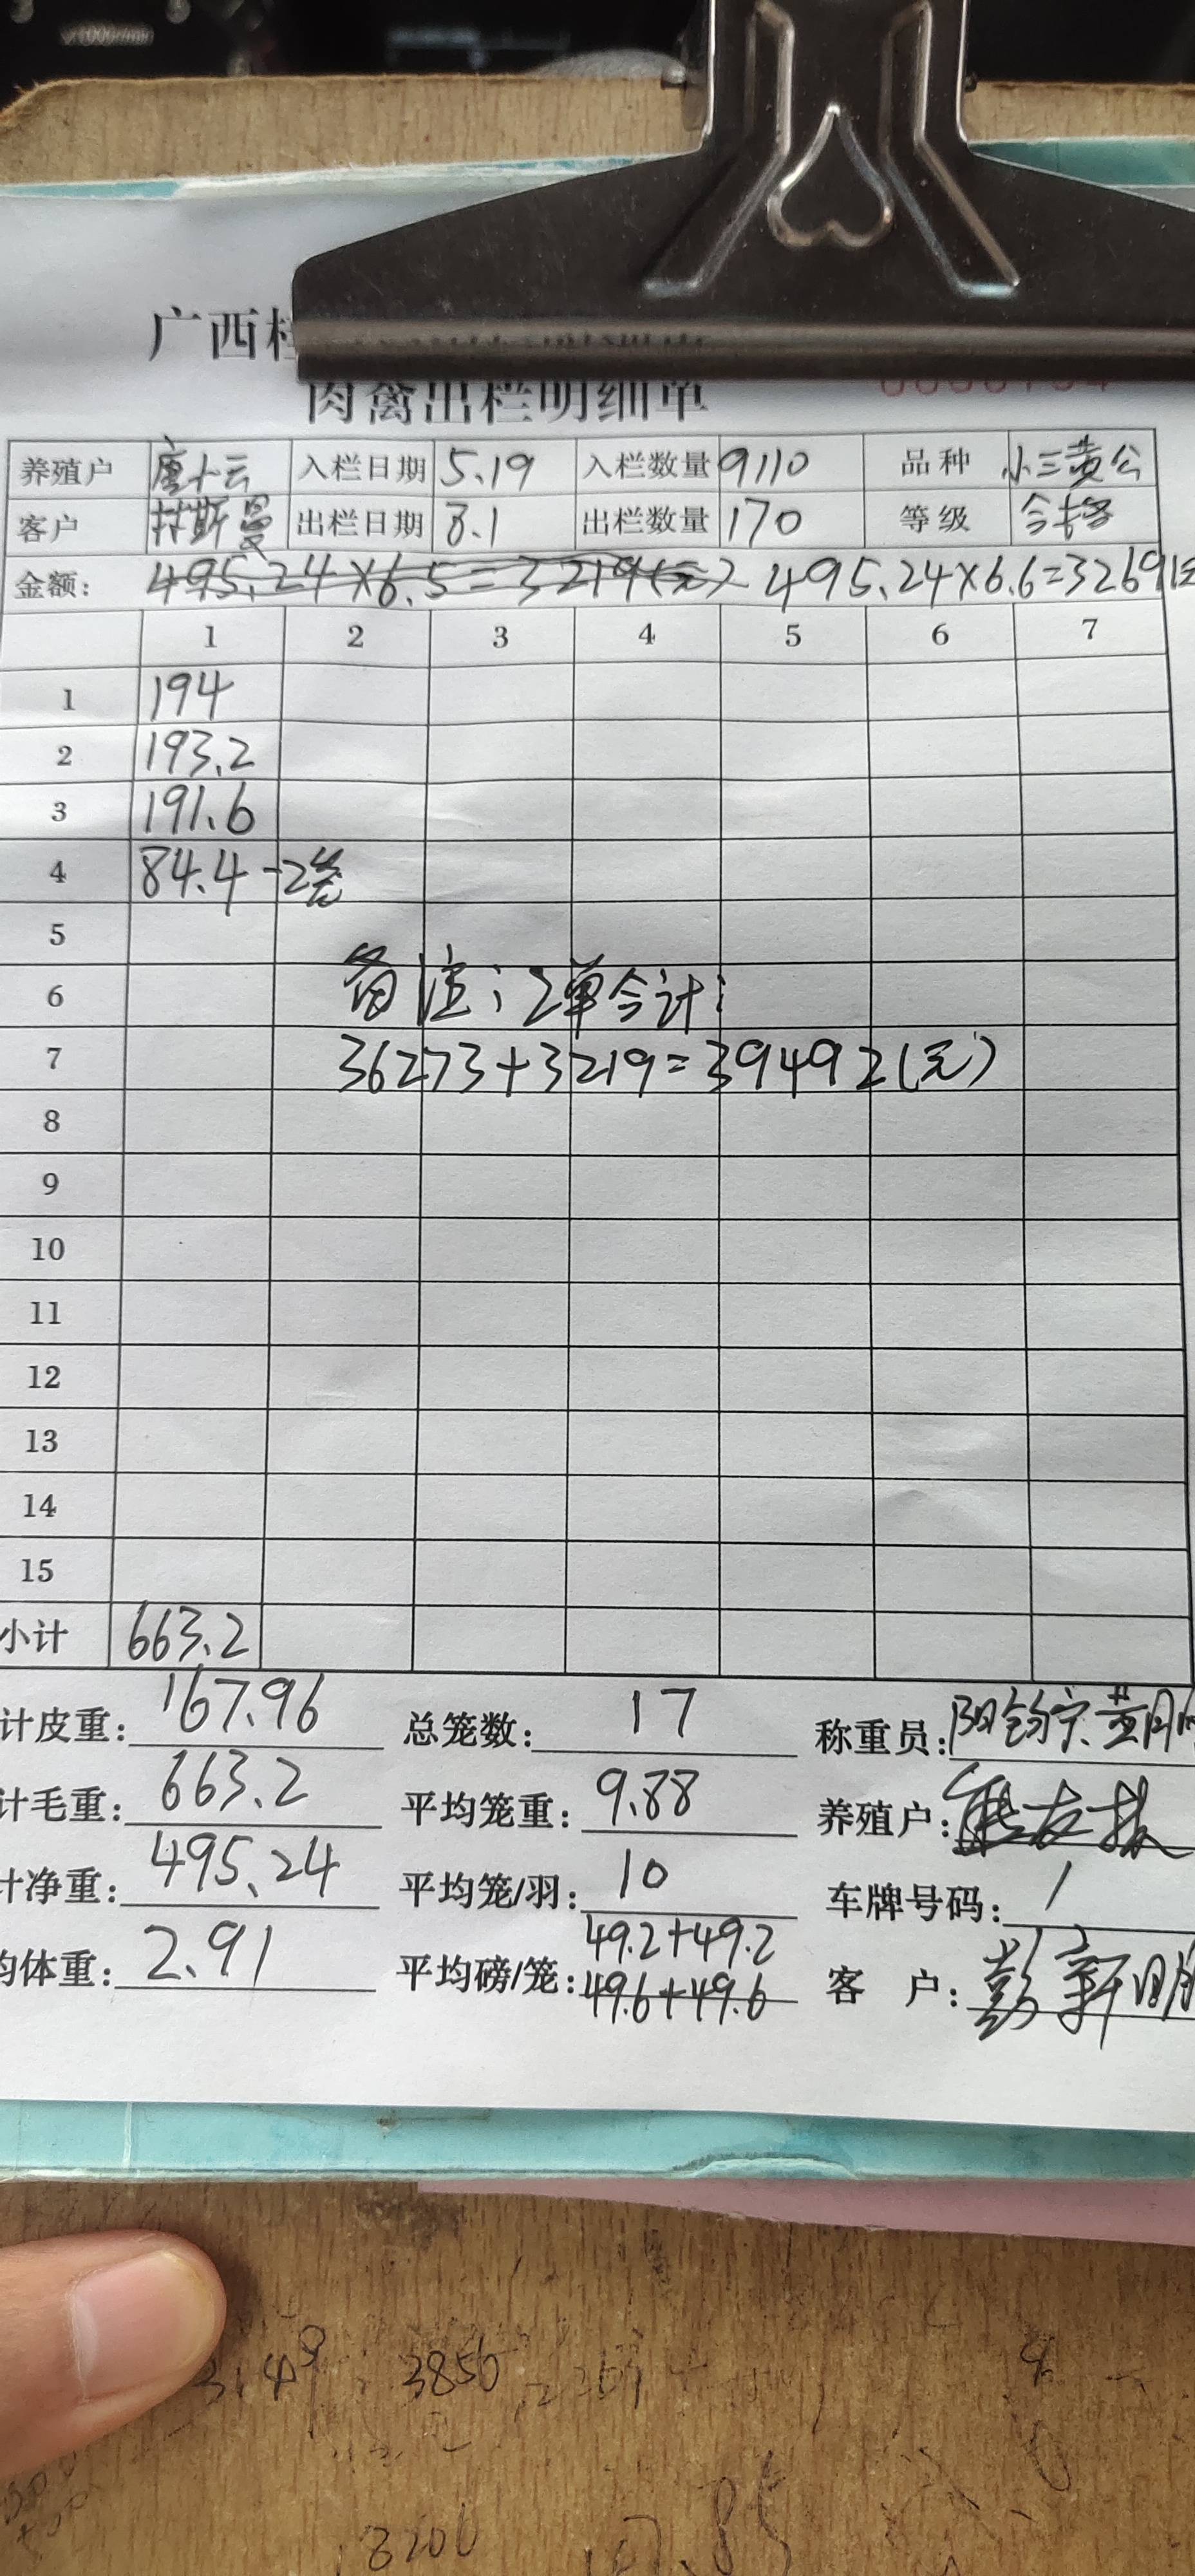 x1000r/min
广西桂
肉禽出栏明细单
养殖户 唐十云 入栏日期 5.19 入栏数量 9110 品种 小三黄公
客户 林斯曼 出栏日期 8.1 出栏数量 170 等级 合格
金额: 495.24×6.5=3219(元) 495.24×6.6=3269(元
1 2 3 4 5 6 7
1 194
2 193.2
3 191.6
4 84.4-2笼
5
6 备注:2单合计:
7 36273+3219=39492(元)
8
9
10
11
12
13
14
15
小计 663.2
计皮重: 167.96 总笼数: 17 称重员:
计毛重: 663.2 平均笼重: 9.88 养殖户:
计净重: 495.24 平均笼/羽: 10 车牌号码: /
49.2+49.2
均体重: 2.91 平均磅/笼: 49.6+49.6 客 户: 彭新明
3850
3200